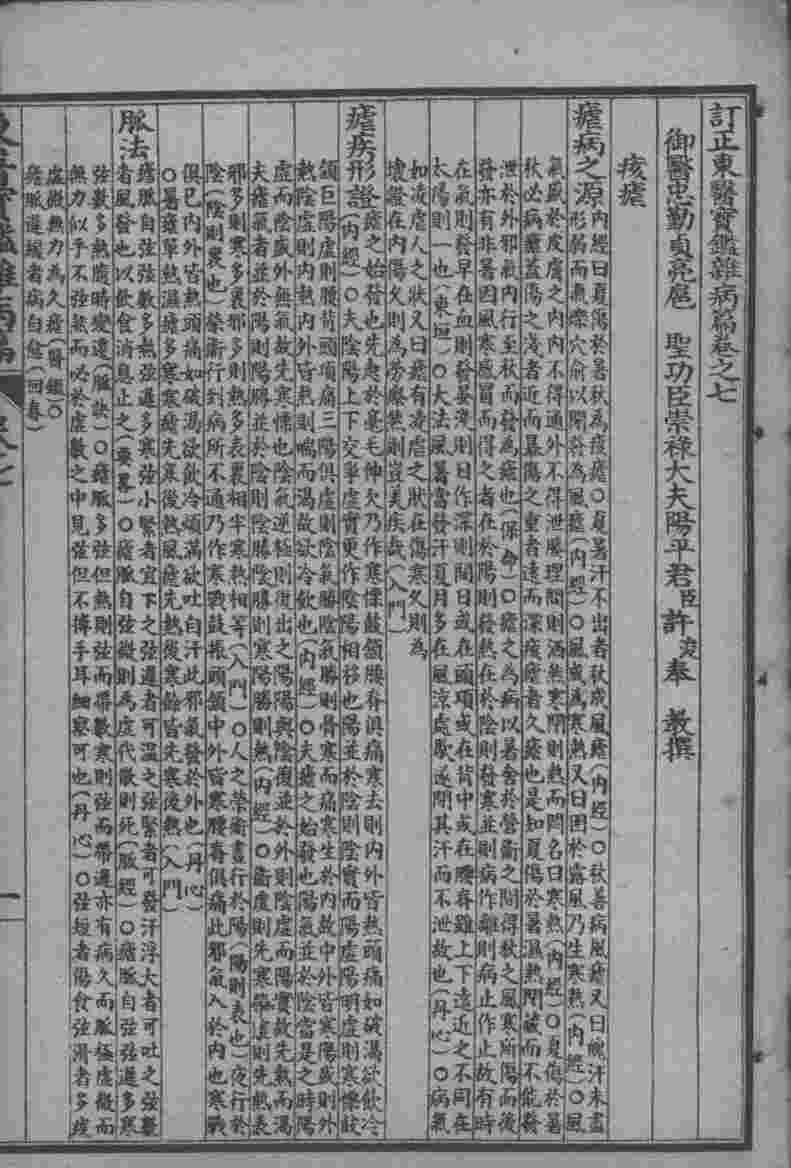 訂正東醫寶鑑雜病篇卷之七
御醫忠勤貞亮扈 聖功臣崇祿大夫陽平君臣許浚奉 教撰
痎瘧
瘧病之源
內經曰夏傷於暑秋為痎瘧○夏暑汗不出者秋成風瘧(內經)○秋善病風瘧又曰魄汗未盡
形弱而氣爍穴俞以閉發為風瘧(內經)○風成為寒熱又曰因於露風乃生寒熱(內經)○風
氣盛於皮膚之內內不得通外不得泄腠理開則洒然寒閉則熱而悶名曰寒熱(內經)○夏傷於暑
秋必病瘧蓋傷之淺者近而暴傷之重者遠而深痎瘧者久瘧也是知夏傷於暑濕熱閉藏而不能發
泄於外邪氣內行至秋而發為瘧也(保命)○瘧之為病以暑舍於營衛之間得秋之風寒所傷而後
發亦有非暑因風寒感冒而得之者在於陽則發熱在於陰則發寒並則病作離則病止作止故有時
在氣則發早在血則發晏淺則日作深則間日或在頭項或在背中或在腰脊雖上下遠近之不同在
太陽則一也(東垣)○大法風暑當發汗夏月多在風涼處歇遂閉其汗而不泄故也(丹心)○病氣
如凌虐人之狀又曰瘧有凌虐之狀在傷寒久則為
壞證在內陽久則為勞瘵然則豈美疾哉(入門)
瘧疾形證
(內經)瘧之始發也先起於毫毛伸欠乃作寒慄鼓頷腰脊俱痛寒去則內外皆熱頭痛如破渴欲飲冷
(內經)○夫陰陽上下交爭虛實更作陰陽相移也陽並於陰則陰實而陽虛陽明虛則寒慄鼓
頷巨陽虛則腰背頭項痛三陽俱虛則陰氣勝陰氣勝則骨寒而痛寒生於內故中外皆寒陽盛則外
熱陰虛則內熱內外皆熱則喘而渴故欲冷飲也(內經)○夫瘧之始發也陽氣並於陰當是之時陽
虛而陰盛外無氣故先寒慄也陰氣逆極則復出之陽陽與陰復並於外則陰虛而陽實故先熱而渴
夫瘧氣者並於陽則陽勝並於陰則陰勝陰勝則寒陽勝則熱(內經)○衛虛則先寒榮虛則先熱表
邪多則寒多裏邪多則熱多表裏相半寒熱相等(入門)○人之榮衛晝行於陽(陽則表也)夜行於
陰(陰則裏也)榮衛行到病所不通乃作寒戰鼓振頭頷中外皆寒腰脊俱痛此邪氣入於內也寒戰
俱已內外皆熱頭痛如破渴欲飲冷煩滿欲吐自汗此邪氣發於外也(丹心)
○暑瘧單熱濕瘧多寒寒瘧先寒後熱風瘧先熱後寒餘皆先寒後熱(入門)
脈法
瘧脈自弦弦數多熱弦遲多寒弦小緊者宜下之弦遲者可溫之弦緊者可發汗浮大者可吐之弦數
者風發也以飲食消息止之(要畧)○瘧脈自弦微則為虛代散則死(脈經)○瘧脈自弦弦遲多寒
弦數多熱隨時變遷(脈訣)○瘧脈多弦但熱則弦而帶數寒則弦而帶遲亦有病久而脈極虛微而
無力似乎不弦然而必於虛數之中見弦但不搏手耳細察可也(丹心)○弦短者傷食弦滑者多痰
虛微無力為久瘧(醫鑑)○
瘧脈遲緩者病自愈(回春)